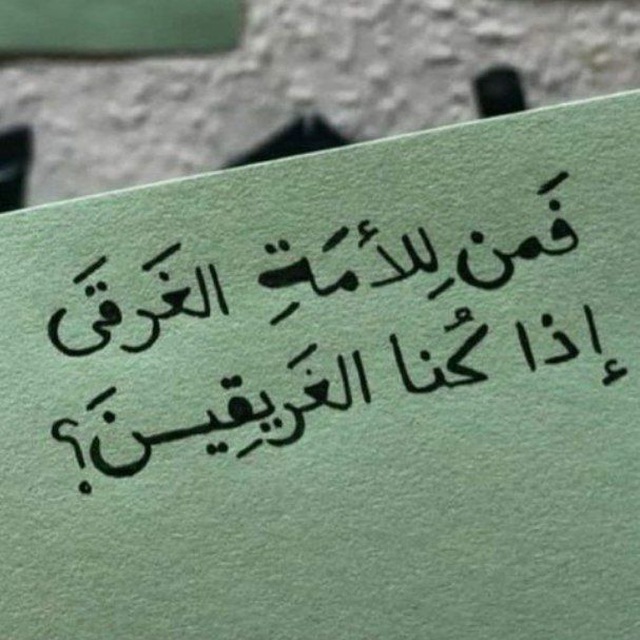 فَمن لِلأمَةِ الغَرقَى
إذا كُنا الغَريقِينَ؟